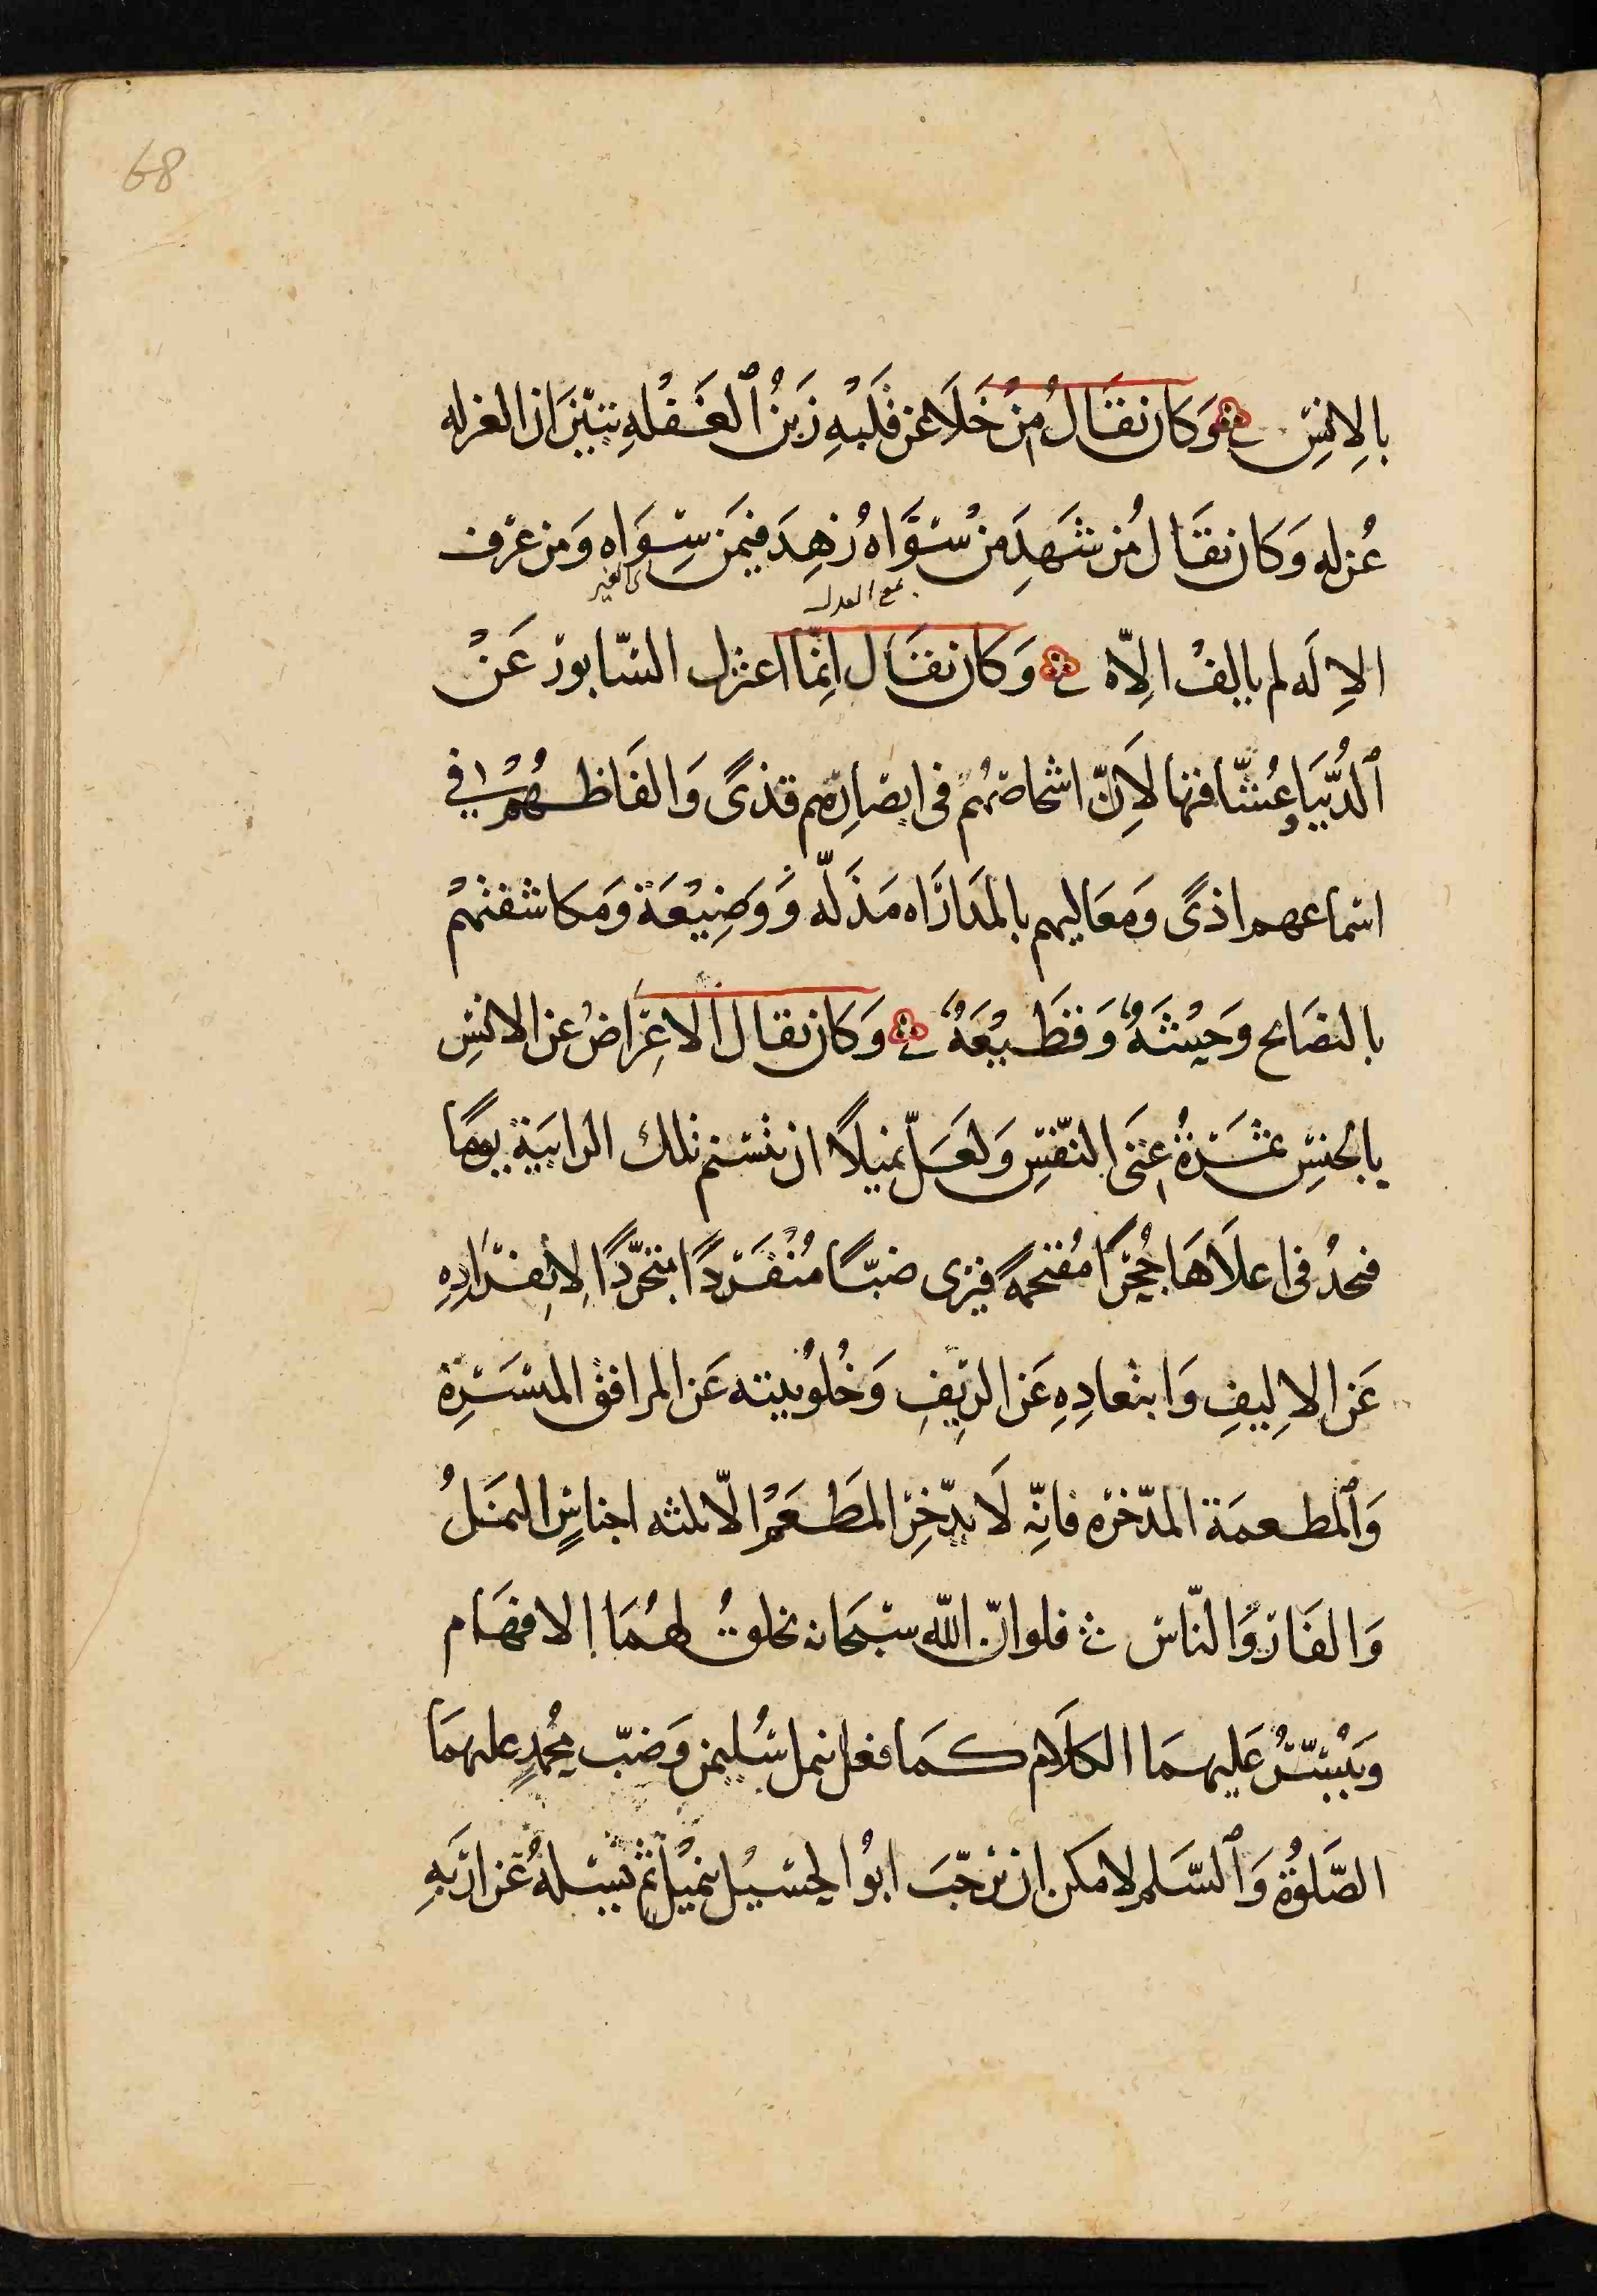 68
بِالاِنْسِ وَكان يقَالُ مَنْ خَلَا عن قَلْبِهِ رَيْنُ ٱلْغَفْلَهِ تبيّنَ ان العزله
عُزله وَكان يقَال مَن شَهِدَ مَنْ سَوَّاهُ زهِدَ فيمَن سِوَاه وَمن عَرف
مع العدل كالغير
الاِلَه لم يالفْ الاّه وَكان يقَال انّما اعتزل السّابور عَنْ
ٱلدُّنْيَا وعُشّاقها لاَنّ اشخاصَهُم فى ابصارِهم قذىً وَالفَاظهُمْ فى
اسْماعهم اذىً وَمعَاليهم بالمدَارَاه مَذَلّه وَوَضِيْعَة وَمكاشفتهمْ
بالنصَائح وَحِيْشَةٌ وَفظَيْعَةٌ وَكان يقال الاعِرَاضُ عن الانسِ
بالجنسِ ثمَرَةُ غِنَى النّفسِ وَلعَلّ مْيلًا ان تتسنّم تلك الرابيَة يومًا
فتجدُ فى اعلَاهَا جُحْرًا مُقتحمةً فترى ضبًّا مُنْفَرِدًا متجَرّدًا لِانِفرَادِهِ
عَن الاِلِيفِ وَابتعادِهِ عَن الرِّيفِ وَخُلوّ بيته عَن المرافق المسَرِة
وَٱلْمطعمَة المدّخره فانّه لَا يدّخِر المَطعَمْ الّا ثلثه اجناسٍ النمَلُ
وَالفَار وَالنّاس فلو انّ اللّه سبْحَانه يخلقُ لهُمَا الافهَام
وَيُيَسّرُ عَليهمَا الكلَام كمَا فعل بنمل سُليمن وَضبّ محُمدٍ عليهمَا
الصَّلوُة وَٱلسّلم لامكن ان يرحّبَ ابوُ الحِسْيل بنميْل ثم يَسْئلهُ عَن ارَبهِ